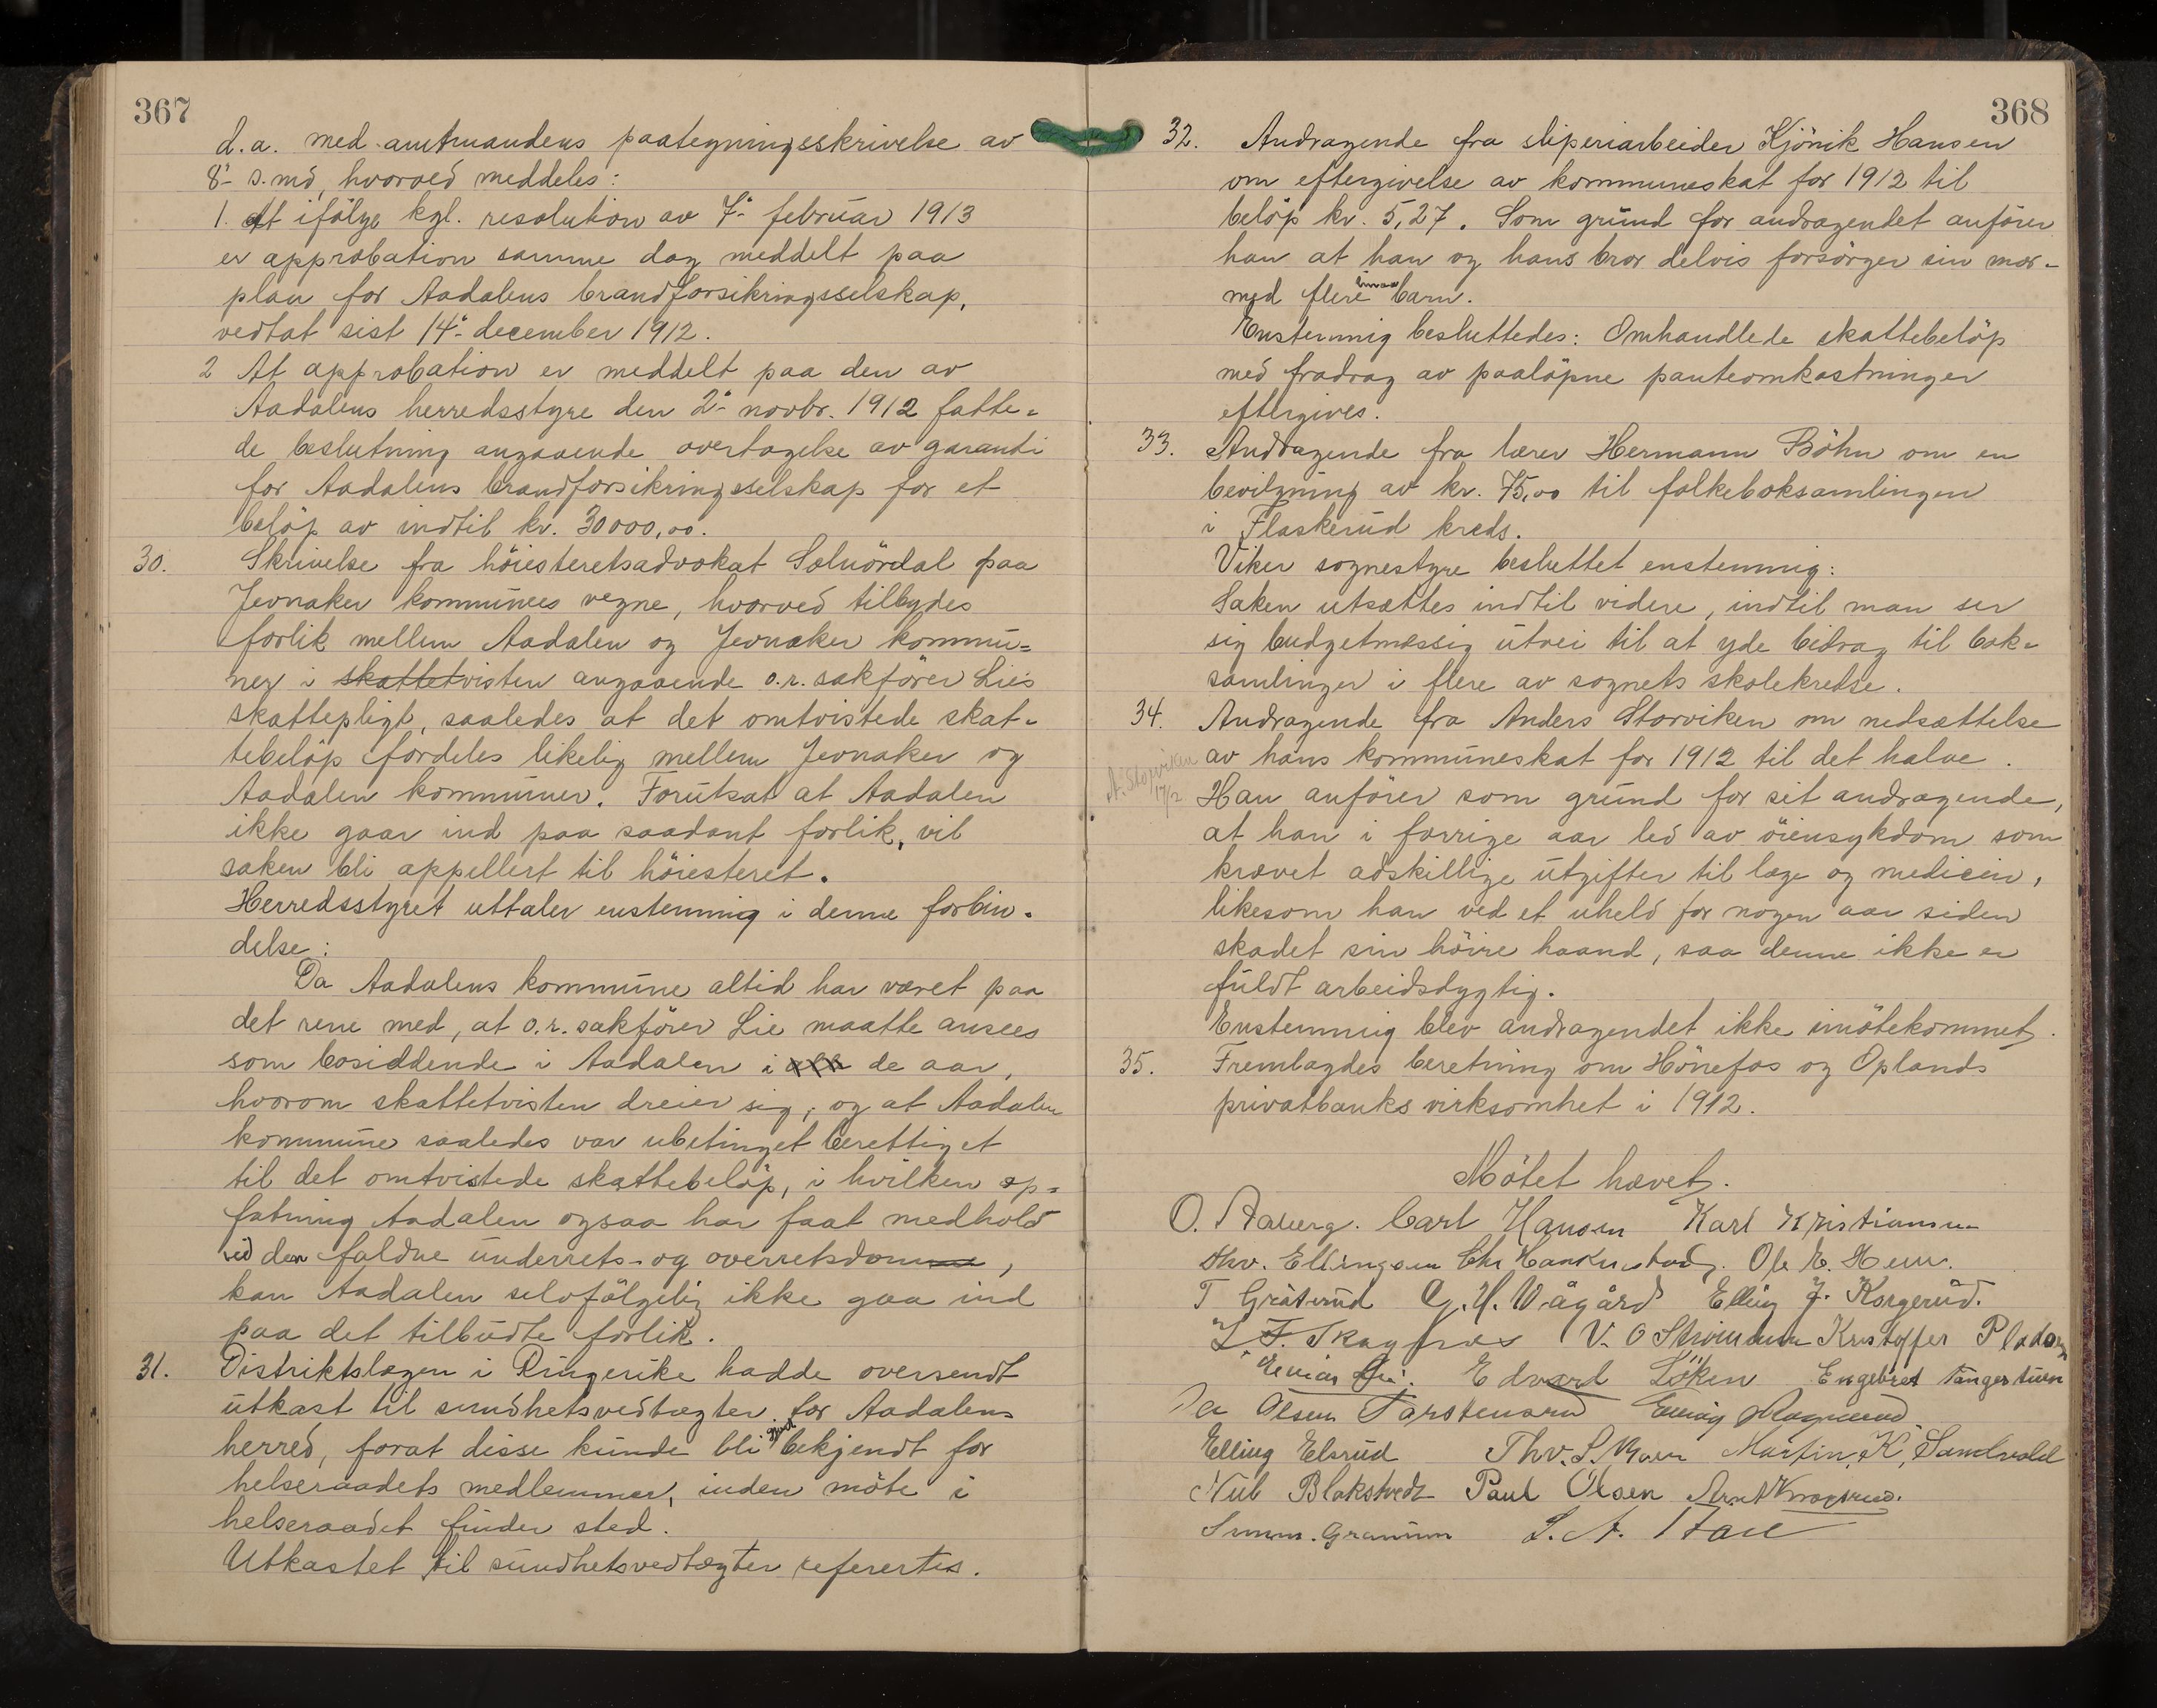 367
d.a. med amtmandens paategningsskrivelse av
8- s.md, hvorved meddeles:
1. At ifölge kgl. resolution av 7- februar 1913
er approbation samme dag meddelt paa
plan for Aadalens brandforsikringsselskap,
vedtat sist 14- december 1912.
2 At approbation er meddelt paa den av
Aadalens herredsstyre den 2- novbr. 1912 fatte=
de beslutning angaaende overtagelse av garanti
for Aadalens brandforsikringsselskap for et
belöp av indtil kr. 30000,00.
30. Skrivelse fra höiesteretsadvokat Solnördal paa
Jevnaker kommunes vegne, hvorved tilbydes
forlik mellem Aadalen og Jevnaker kommu=
ner i skattetvisten angaaende o.r. sakförer Lies
skattepligt, saaledes at det omtvistede skat=
tebelöp fordeles likelig mellem Jevnaker og
Aadalen kommuner. Forutsat at Aadalen
ikke gaar ind paa saadant forlik, vil
saken bli appellert til höiesteret.
Herredsstyret uttaler enstemmig i denne forbin=
delse:
Da Aadalens kommune altid har været paa
det rene med, at o.r. sakförer Lie maatte ansees
som bosiddende i Aadalen i de aar,
hvorom skattetvisten dreier sig, og at Aadalen
kommune saaledes var ubetinget berettiget
til det omtvistede skattebelöp, i hvilken op=
fatning Aadalen ogsaa har faat medhold
ved den faldne underrets- og overretsdom,
kan Aadalen selvfölgelig ikke gaa ind
paa det tilbudte forlik.
31. Distriktslægen i Ringerike hadde oversendt
utkast til sundhetsvedtægter for Aadalens
herred, forat disse kunde bli gjort bekjendt for
helseraadets medlemmer, inden möte i
helseraadet finder sted.
Utkastet til sundhetsvedtægter refertes.
368
32. Andragende fra sliperiarbeider Kjönik Hansen
om eftergivelse av kommuneskat for 1912 til
belöp kr. 5,27. Som grund for andragendet anförer
han at han og hans bror delvis forsörger sin mor
med flere smaa barn.
Enstemmig besluttedes: Omhandlede skattebelöp
med fradrag av paalöpne panteomkostninger
eftergives.
33. Andragende fra lærer Hermann Böhn om en
bevilgning av kr. 75,00 til folkeboksamlingen
i Flaskerud kreds.
Viker sognestyre besluttet enstemmig:
Saken utsættes indtil videre, indtil man ser
sig budgetmæssig utvei til at yde bidrag til bok=
samlinger i flere av sognets skolekredse.
34. Andragende fra Anders Storviken om nedsættelse
av hans kommuneskat for 1912 til det halve.
A. Storviken
17/2
Han anförer som grund for sit andragende,
at han i forrige aar led av öiensykdom som
krævet adskillige utgifter til læge og medicin,
likesom han ved et uheld for nogen aar siden
skadet sin höire haand, saa denne ikke er
fuldt arbeidsdygtig.
Enstemmig blev andragendet ikke imötekommet.
35. Fremlagdes beretning om Hönefos og Oplands
privatbanks virksomhet i 1912.
Mötet hævet.
O. Aaberg. Carl Hansen Karl Kristiansen
Thv. Ellingsen Chr Ole E. Hem.
T Gråterud G. H. Vågård Elling J. Korgerud.
Skagnæs V. O Strömmen Kristoffer
Edvard Löken Engebret
Olsen Elling
Elling Elsrud Thv. S. Martin. K. Sandvold
Paul Olsen Arnt
Granum S. A.